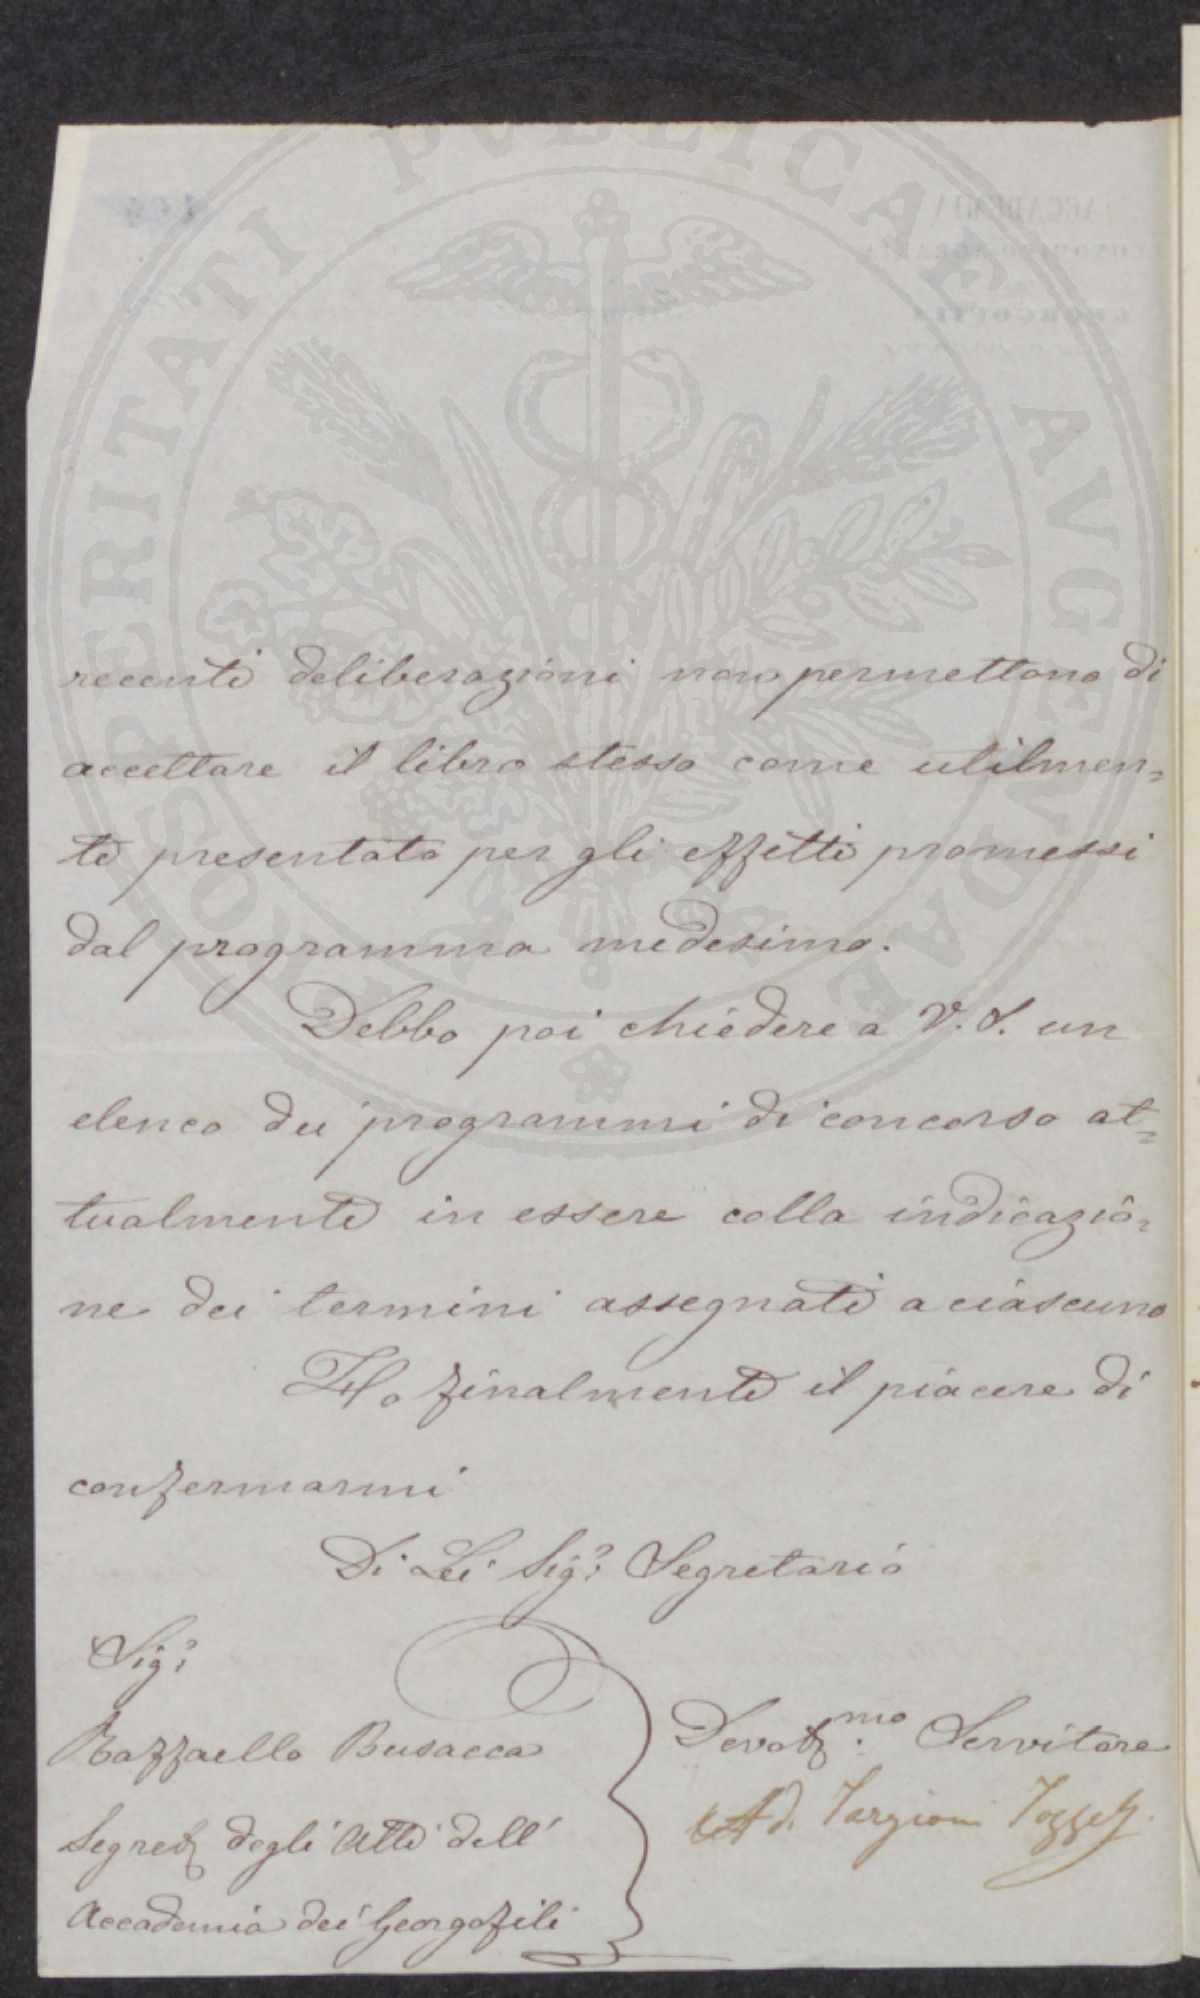 PROSPERITATI PVBLICAE AVGENDAE
recenti deliberazioni non permettono di
accettare il libro stesso come utilmen=
te presentato per gli effetti promessi
dal programma medesimo.
Debbo poi chiedere a V. S. un
elenco dei programmi di concorso at=
tualmente in essere colla indicazio=
ne dei termini assegnati a ciascuno
Ho finalmente il piacere di
confermarmi
Di Lei Sig.r Segretario
Sig.r
Raffaello Busacca
Segret. degli Atti dell'
Accademia dei Georgofili
Devot.mo Servitore
Ad. Targioni Tozzetti